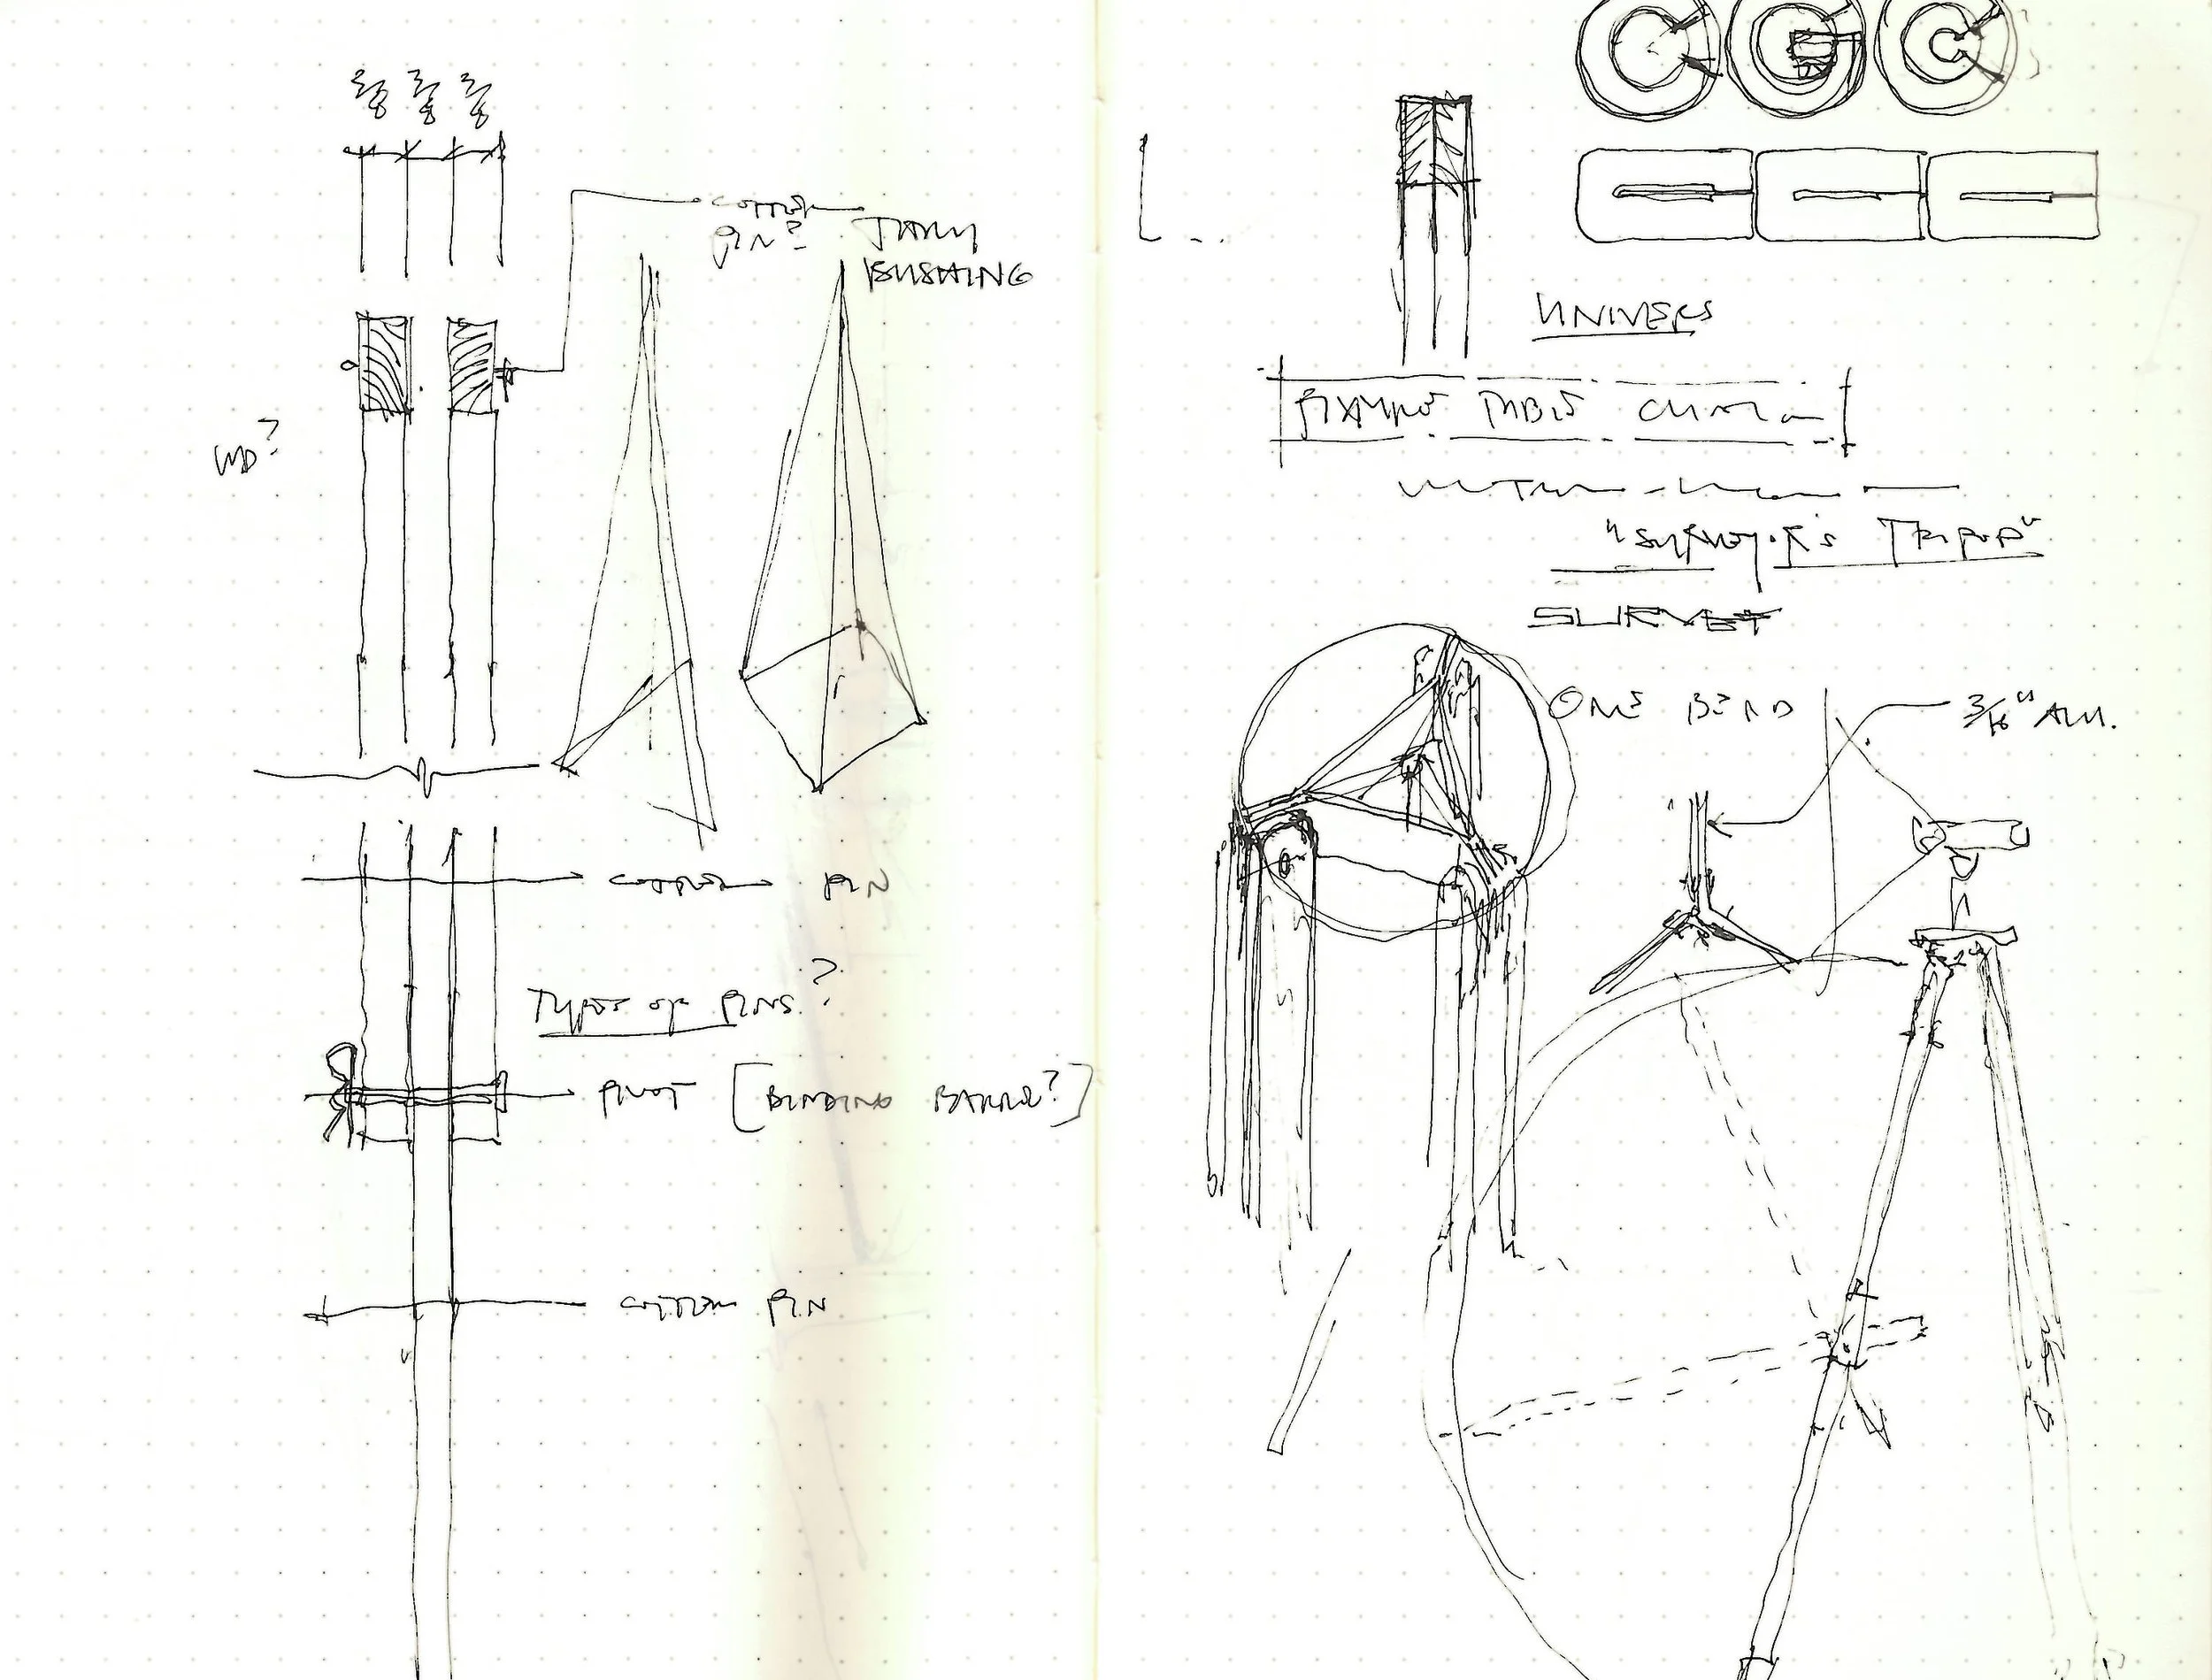 3/8 3/8 3/8
COTTER
PIN?
BUSHING
WD?
COTTER PIN
TYPES OF PINS?
PIVOT [BINDING BARREL?]
COTTER PIN
CGC
CCC
UNIVERS
TABLE
"SURVEYOR'S TRIPOD"
SURVEY
ONE BEND
3/16" ALU.